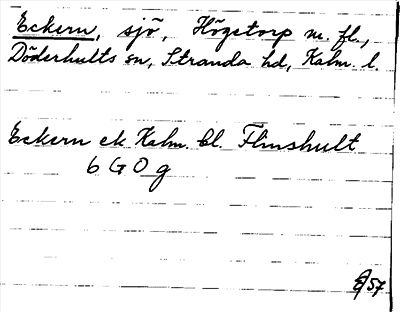 Eckern, sjö, Högstorp m. fl.,
Döderhults sn, Stranda hd, Kalm. l.
Eckern ek Kalm. bl. Flinshult
6 G O g
57